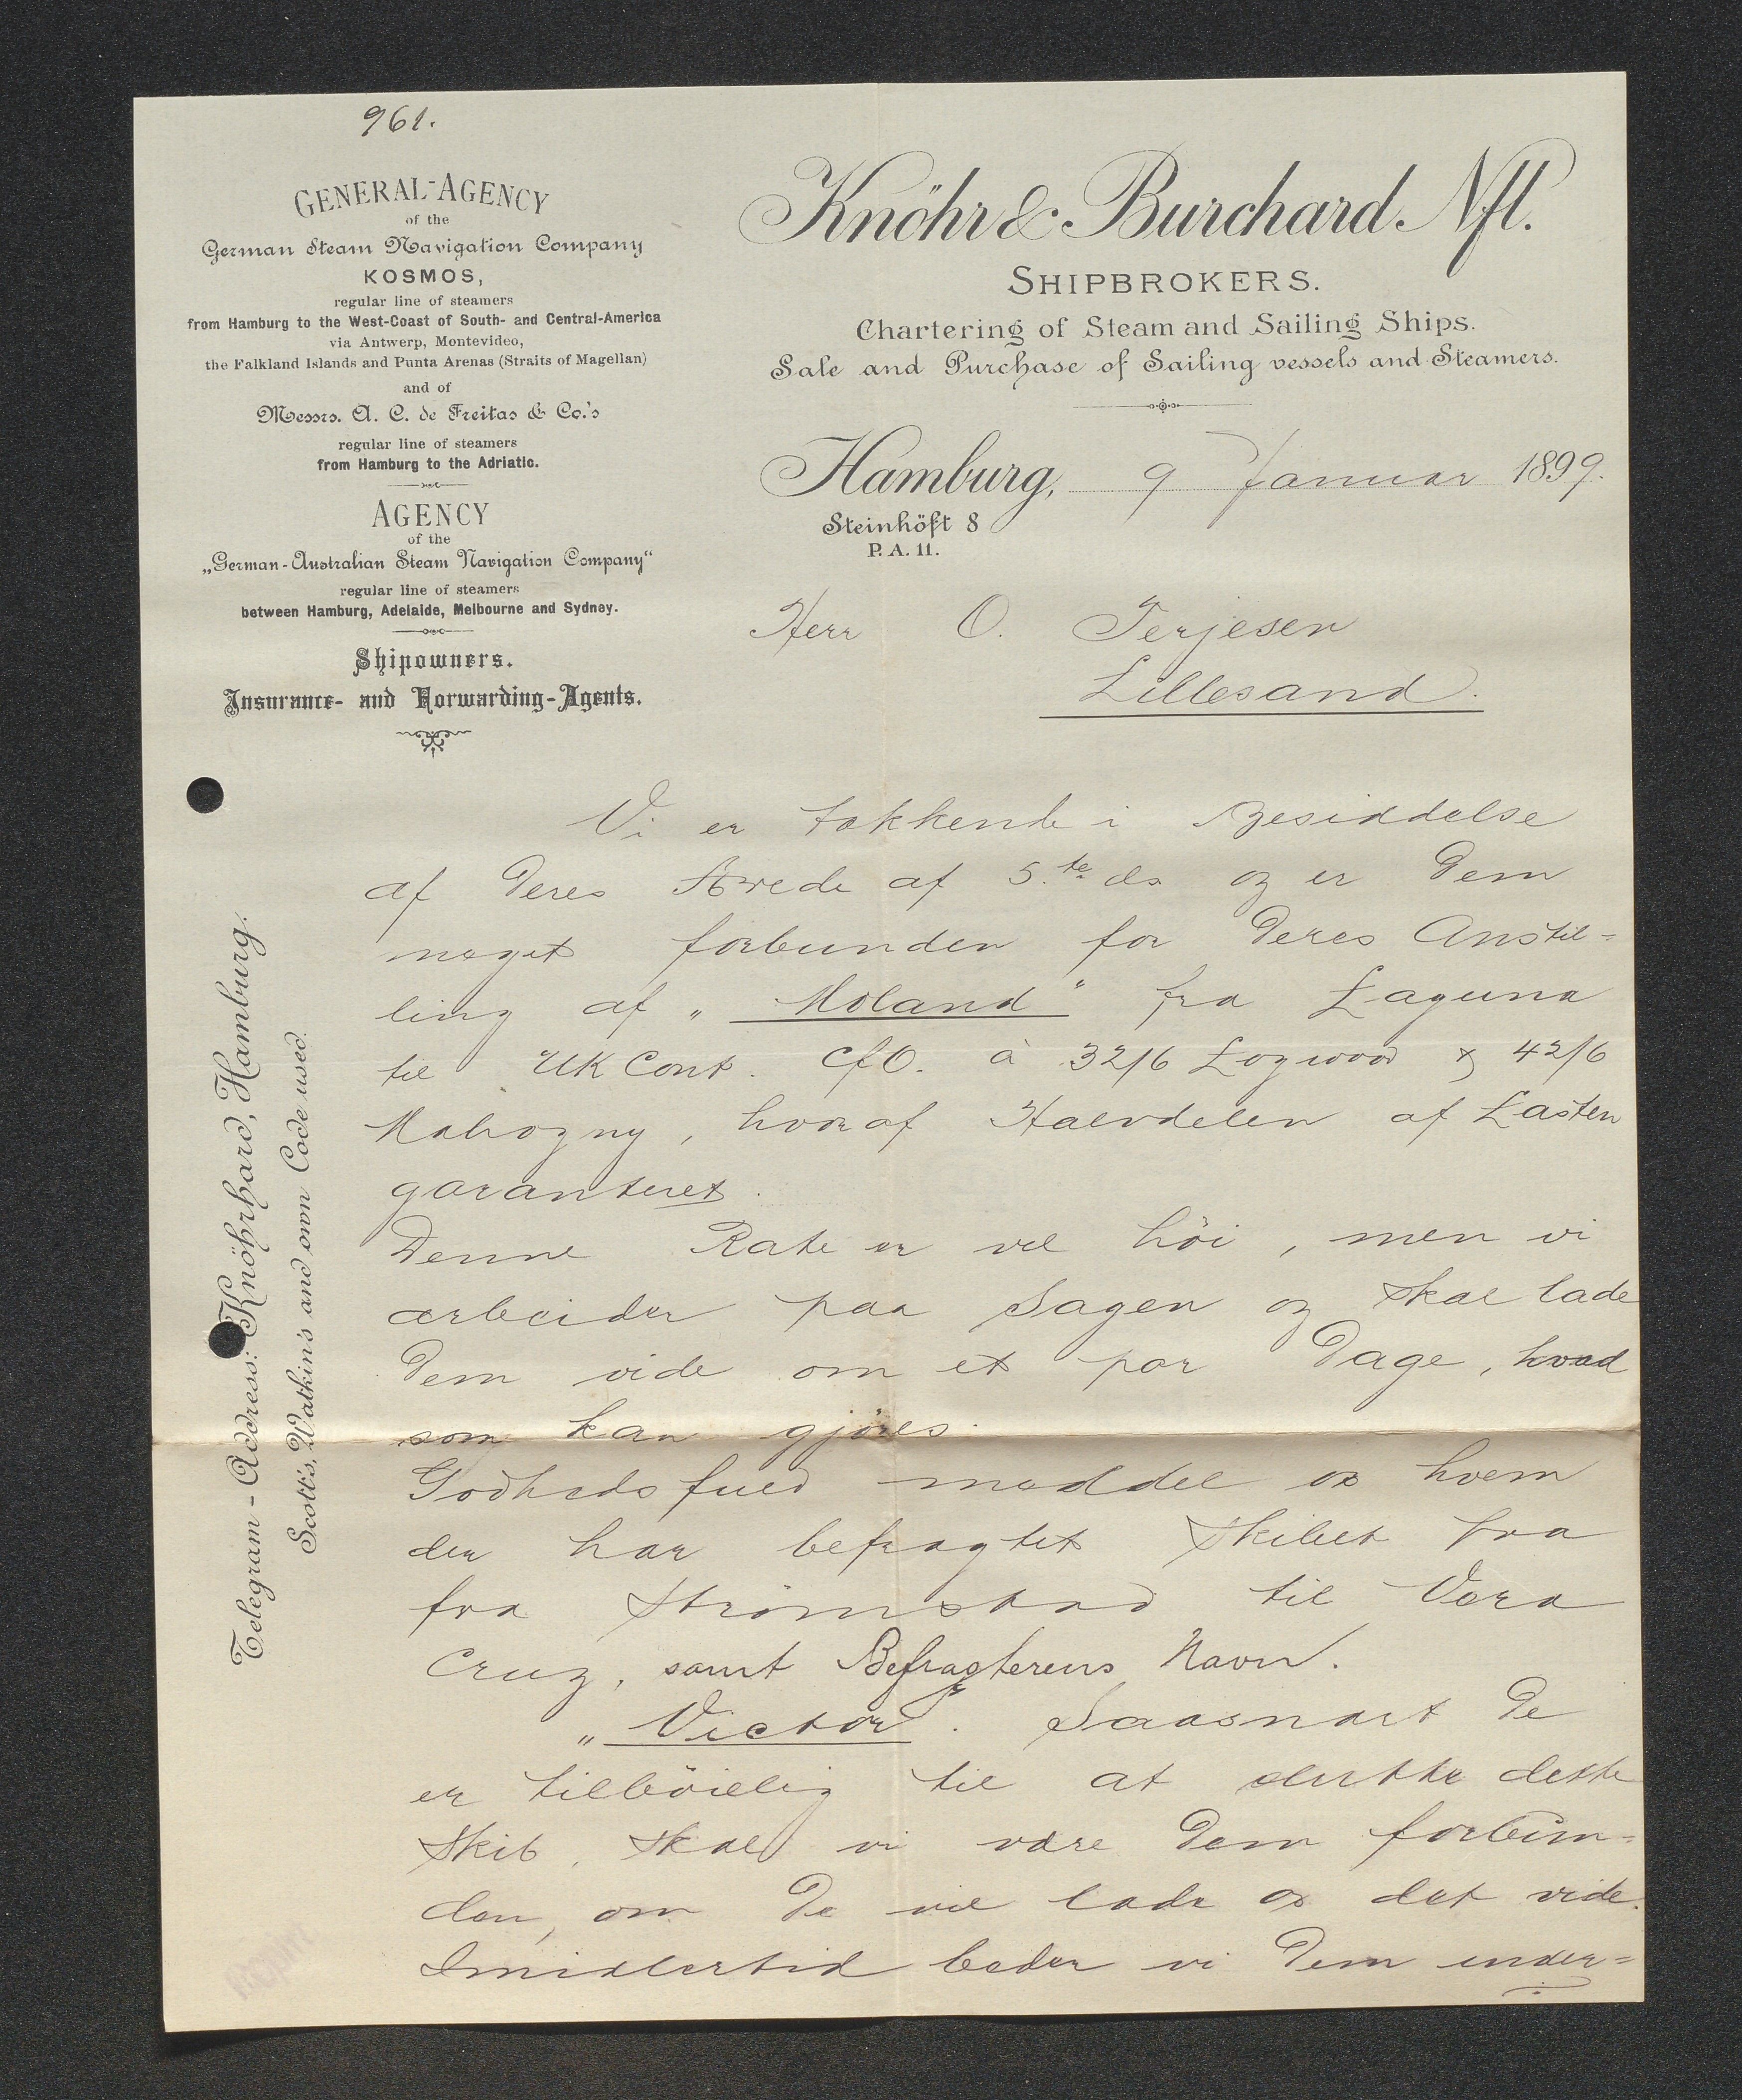 961.
GENERAL-AGENCY
of the
German Steam Navigation Company
KOSMOS,
regular line of steamers
from Hamburg to the West-Coast of South- and Central-America
via Antwerp, Montevideo,
the Falkland Islands and Punta Arenas (Straits of Magellan)
and of
Messrs. A. C. de Freitas & Co.'s
regular line of steamers
from Hamburg to the Adriatic.
AGENCY
of the
„German-Australian Steam Navigation Company“
regular line of steamers
between Hamburg, Adelaide, Melbourne and Sydney.
Shipowners.
Insurance- and Forwarding-Agents.
Telegram-Address: Knöhrhard, Hamburg.
Scott's, Watkin's and own Code used.
Knöhr & Burchard Nfl.
SHIPBROKERS.
Chartering of Steam and Sailing Ships.
Sale and Purchase of Sailing vessels and Steamers.
Hamburg, 9 Januar 1899.
Steinhöft 8
P. A. 11.
Herr O. Terjesen
Lillesand.
Vi er takkende i Besiddelse
af Deres Ærede af 5.te ds og er Dem
meget forbunden for Deres Anstil=
ling af „Moland“ fra Laguna
til UK Cont. CfO. à 32/6 Logwood & 42/6
Mahogny, hvoraf Halvdelen af Lasten
garanteret.
Denne Rate er vel höi, men vi
arbeider paa Sagen og skal lade
Dem vide om et par Dage, hvad
som kan gjöres.
Godhedsfuld meddel os hvem
der har befragtet Skibet fra
fra Strömstad til Vera
Cruz, samt Befragterens Navn.
„Victor“. Saasnart De
er tilböielig til at slutte dette
Skib, skal vi være Dem forbun=
den, om De vil lade os det vide.
Imidlertid beder vi Dem under=